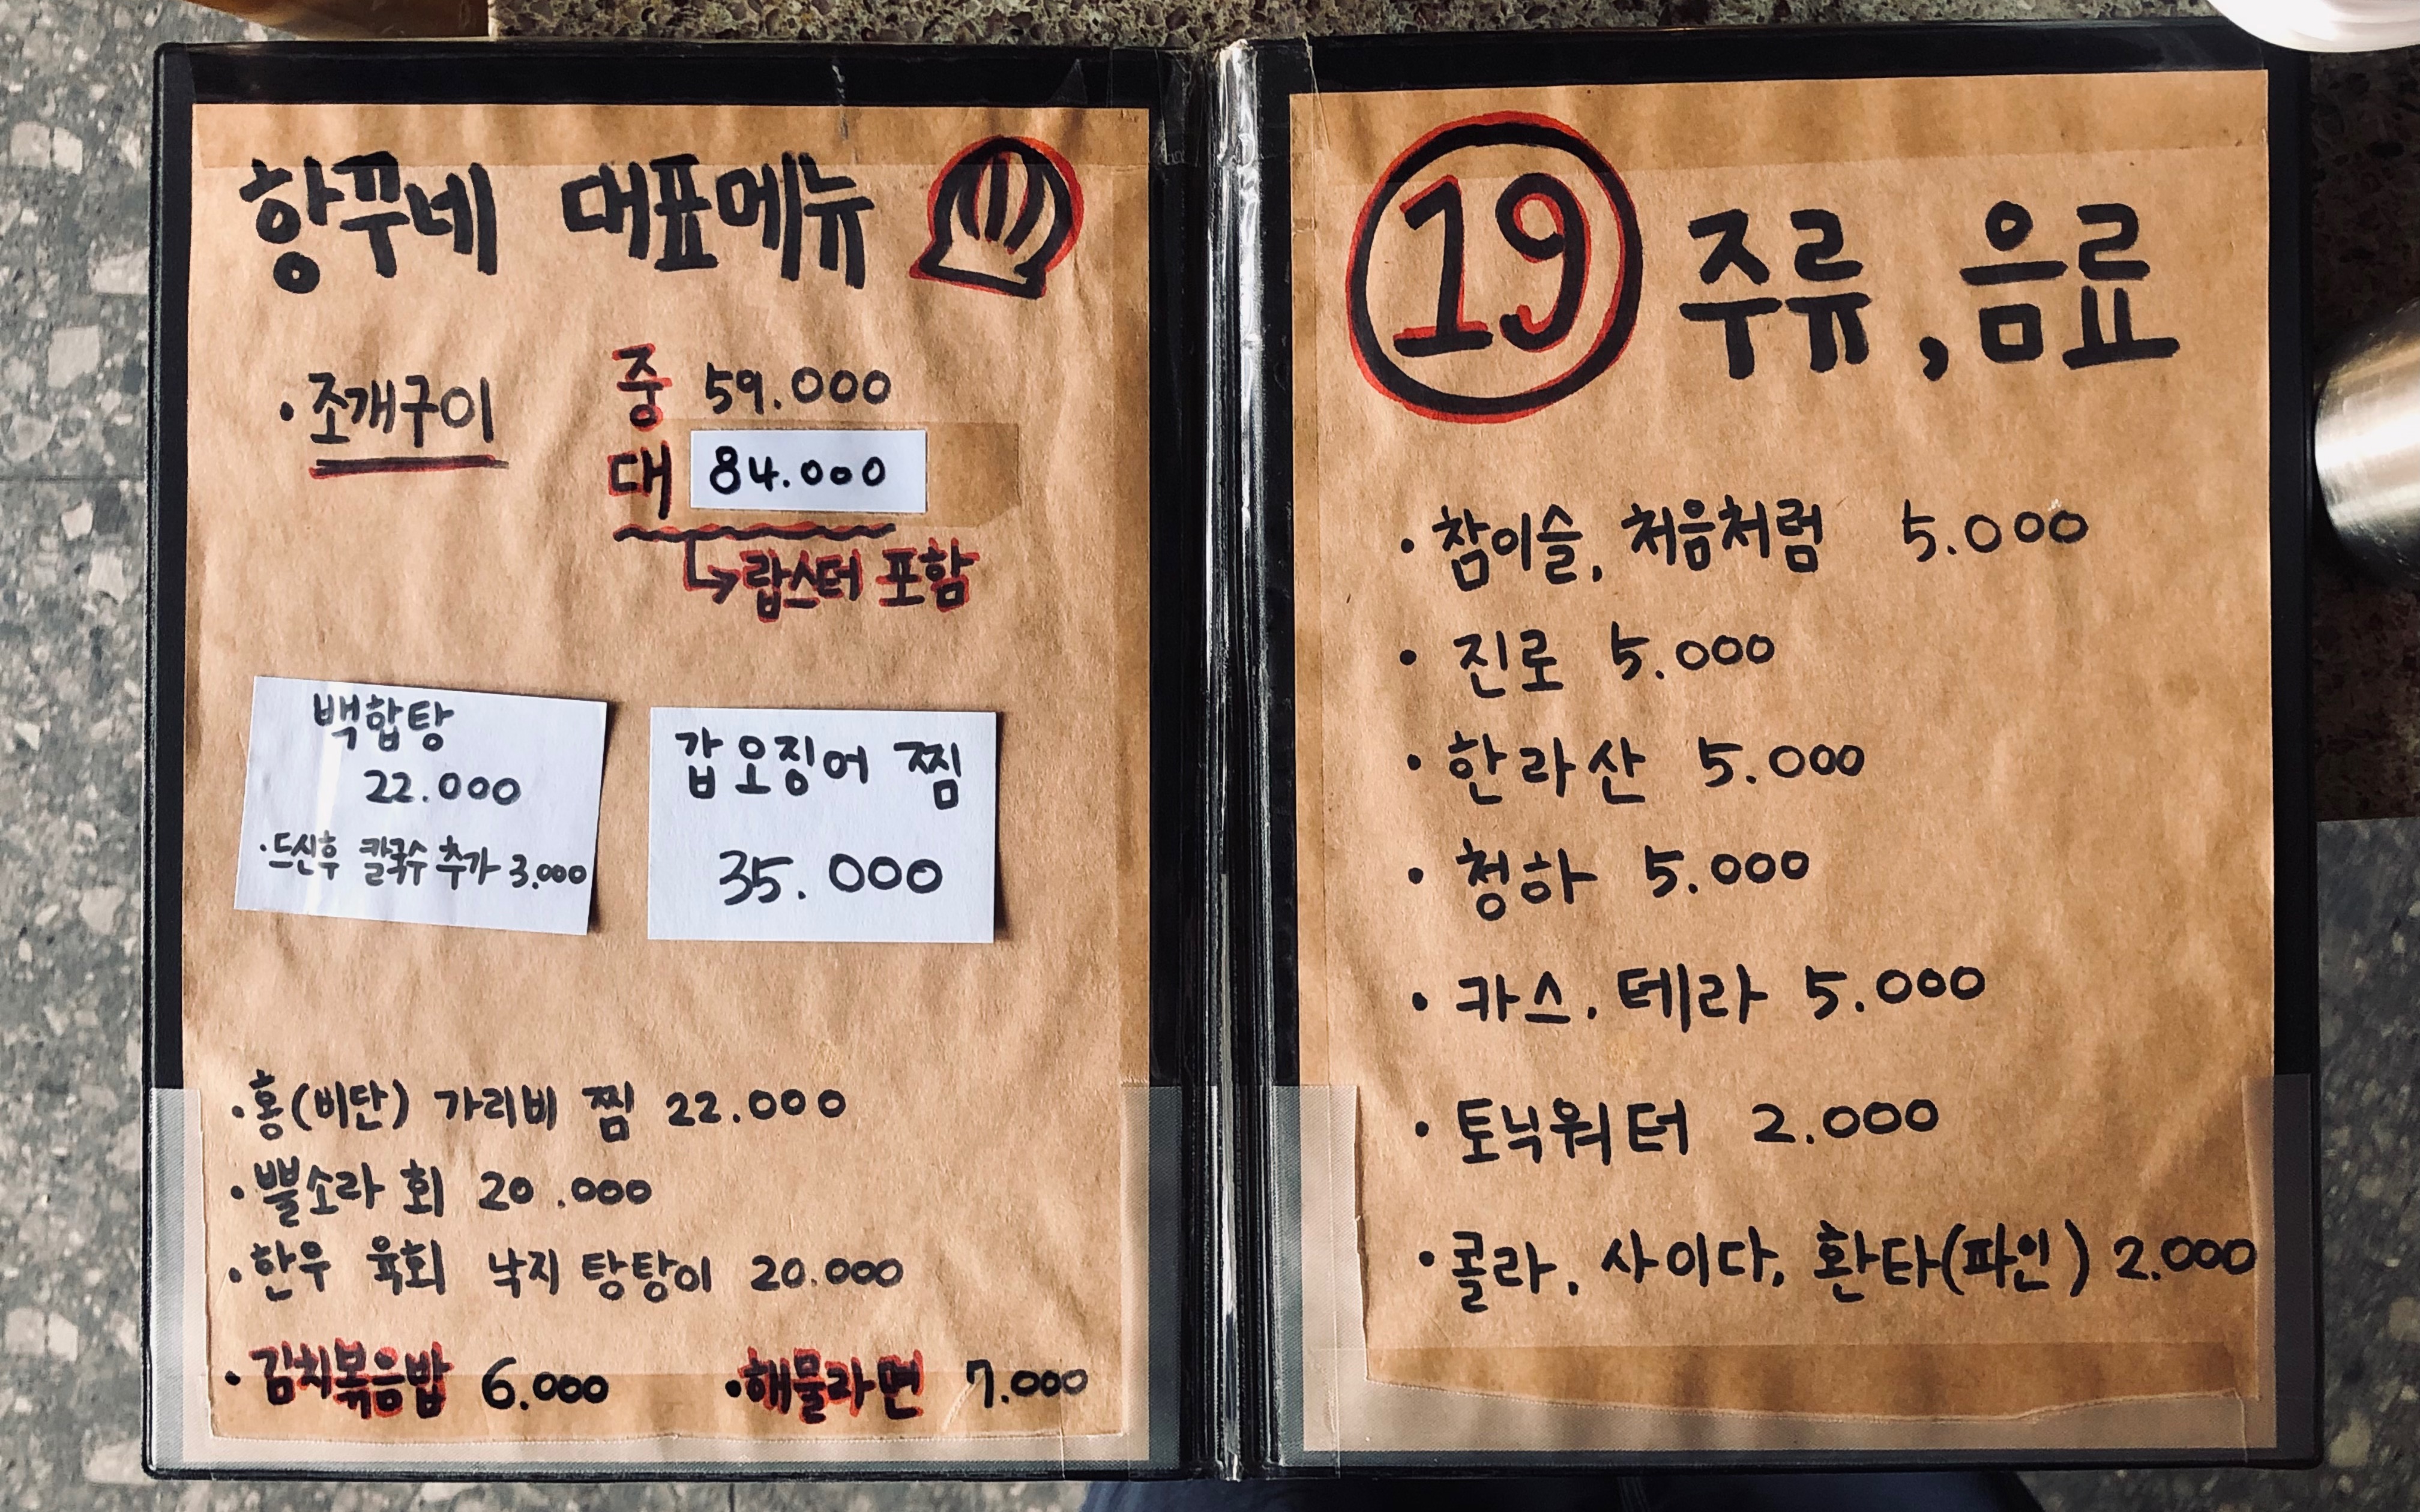 항꾸네 대표메뉴
· 조개구이 중 59.000
대 84.000
↳ 랍스터 포함
백합탕
22.000
· 드신후 칼국수 추가 3.000
갑오징어 찜
35.000
· 홍(비단) 가리비 찜 22.000
· 뿔소라 회 20.000
· 한우 육회 낙지 탕탕이 20.000
· 김치볶음밥 6.000 · 해물라면 7.000
19 주류, 음료
· 참이슬, 처음처럼 5.000
· 진로 5.000
· 한라산 5.000
· 청하 5.000
· 카스. 테라 5.000
· 토닉워터 2.000
· 콜라, 사이다, 환타(파인) 2.000